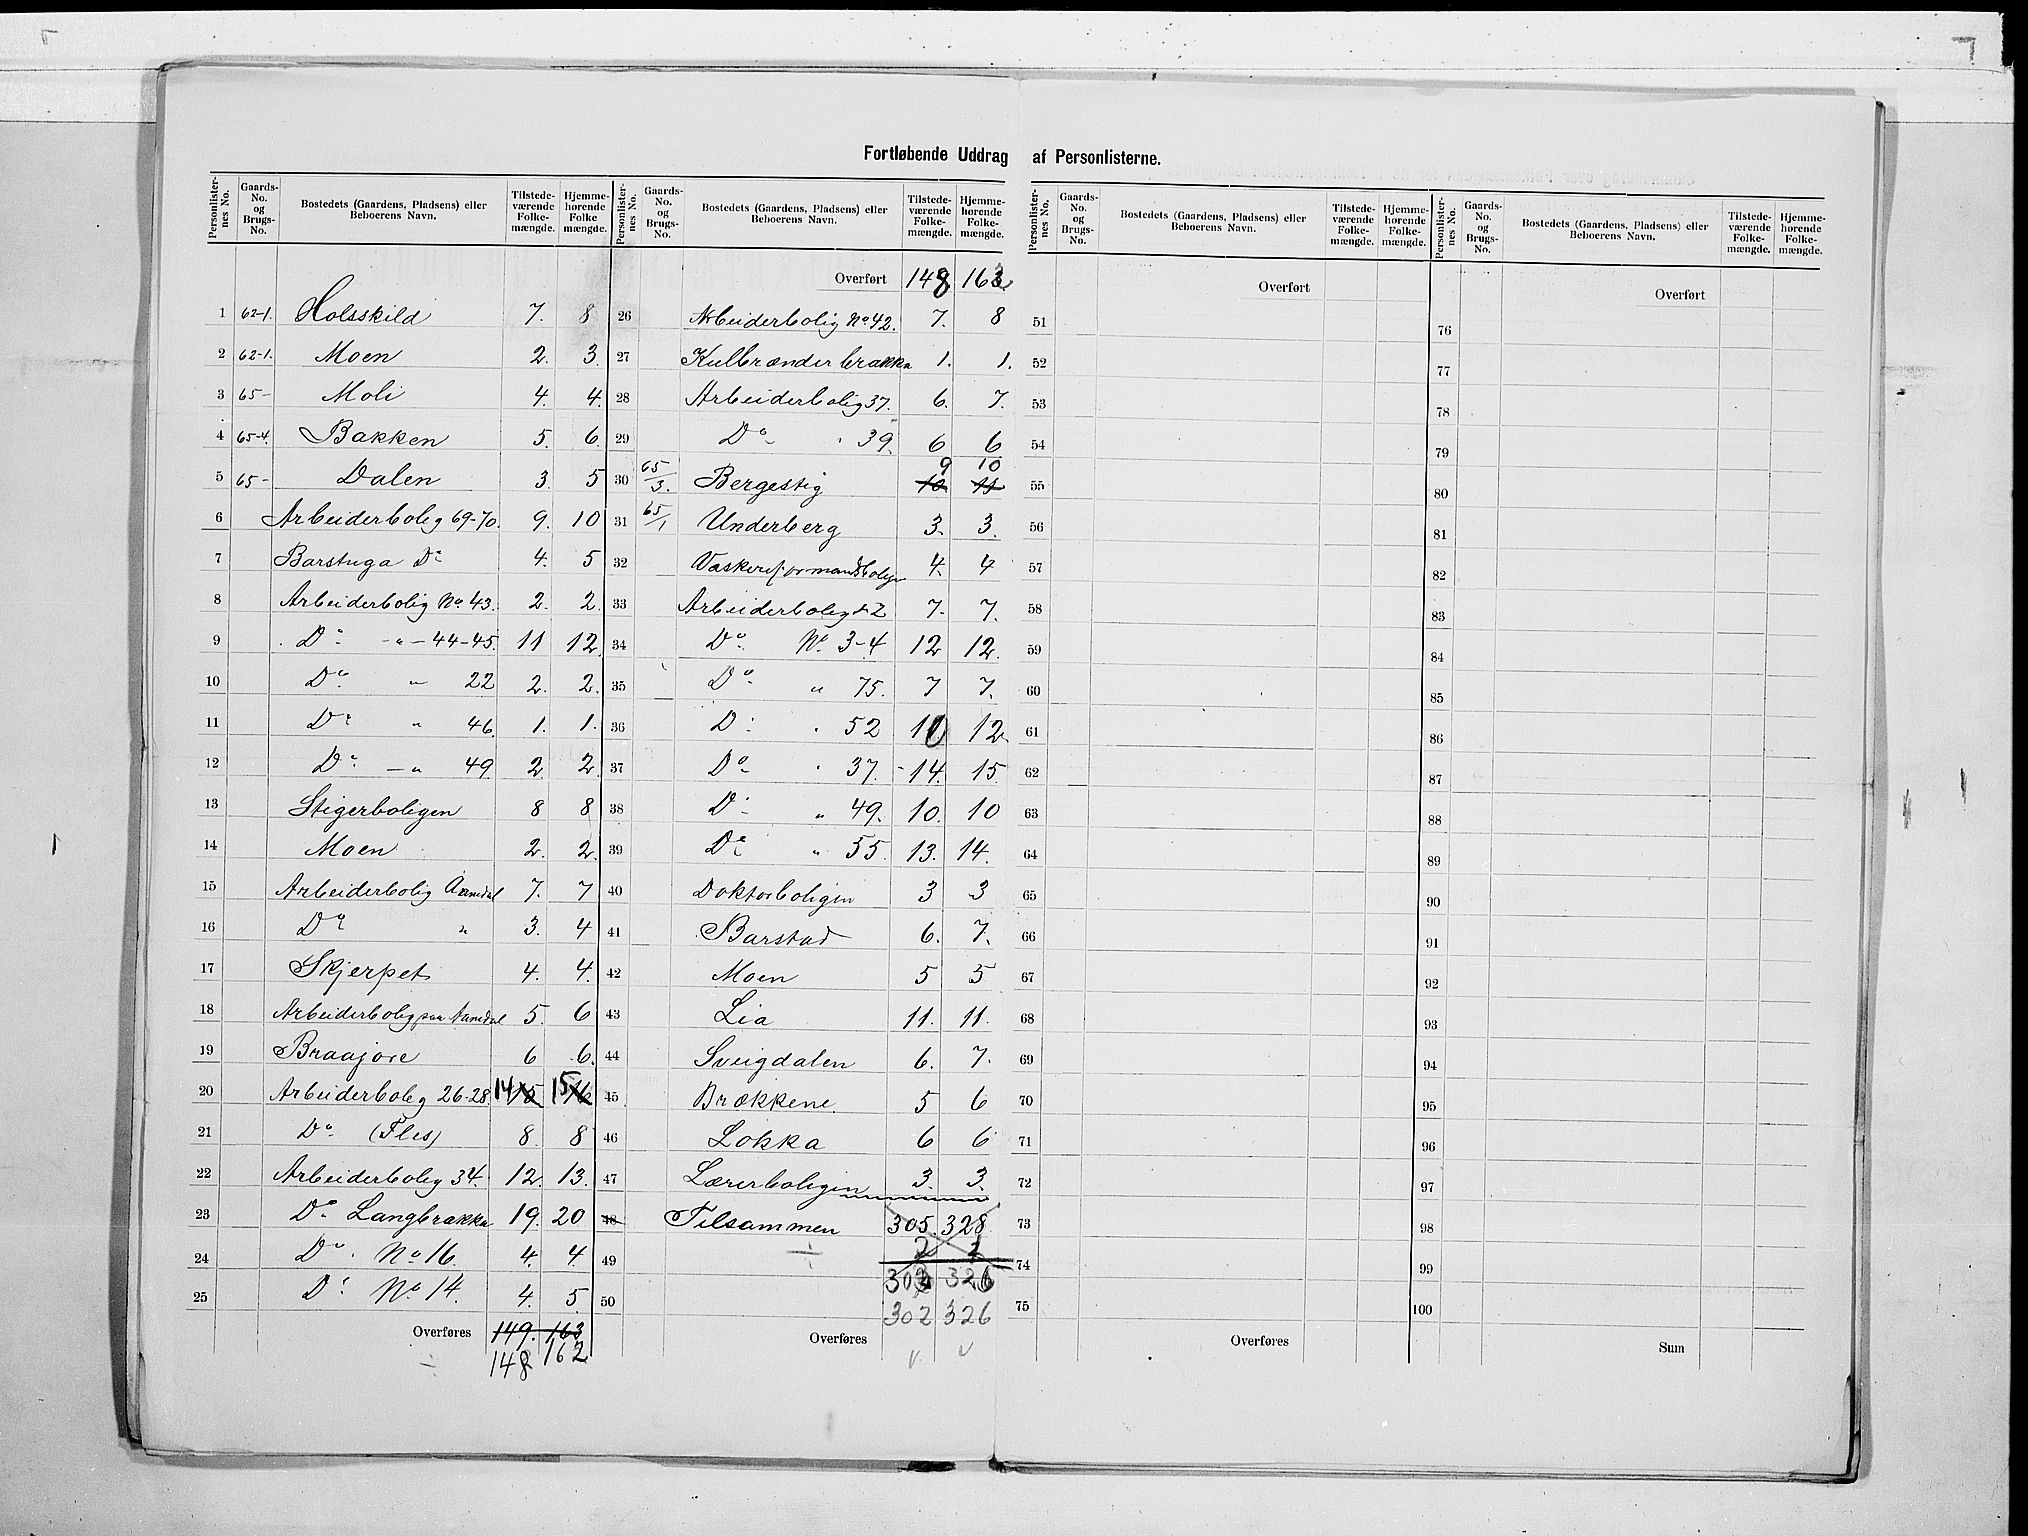 Fortløbende Uddrag af Personlisterne.
Personlister-nes No. | Gaards-No. og Brugs-No. | Bostedets (Gaardens, Pladsens) eller Beboerens Navn. | Tilstede-værende Folke-mængde. | Hjemme-hørende Folke mængde.
1 62-1. Holsskild 7. 8
2 62-1. Moen 2. 3.
3 65- Moli 4. 4.
4 65-4. Bakken 5. 6.
5 65- Dalen 3. 5
6 Arbeiderbolig 69-70. 9. 10
7 Barstuga Do 4. 5
8 Arbeiderbolig No. 43. 2. 2.
9 Do - " - 44-45. 11 12.
10 Do " 22 2. 2.
11 Do " 46. 1. 1.
12 Do - " 49 2 2.
13 Stigerboligen 8 8
14 Moen 2. 2.
15 Arbeiderbolig Aamdal 7. 7
16 Do " 3. 4
17 Skjerpet 4. 4.
18 Arbeiderbolig paa Aamdal 5. 6
19 Braajore 6 6.
20 Arbeiderbolig 26-28. 14 15 15 16
21 Do (Fles) 8. 8
22 Arbeiderbolig 34. 12. 13.
23 Do Langbrakka 19. 20
24 Do. No 16. 4. 4.
25 Do No 14. 4. 5.
Overføres 149. 163
148 162
Personlister-nes No. | Gaards-No. og Brugs-No. | Bostedets (Gaardens, Pladsens) eller Beboerens Navn. | Tilstede-værende Folke-mængde. | Hjemme-hørende Folke-mængde.
Overført 148 162
26 Arbeiderbolig No. 42. 7. 8
27 Kulbrænderbrakka 1. 1.
28 Arbeiderbolig 37. 6. 7.
29 Do " 39. 6 6
9 10
30 65/3. Bergestig 10 11
31 65/1 Underberg 3. 3.
32 Vaskeriformandsboligen 4. 4
33 Arbeiderbolig 7. 7.
34 Do No 3-4 12 12.
35 Do " 75. 7 7.
36 Do " 52 10 12
37 Do " 37. 14. 15.
38 Do " 49. 10. 10
39 Do " 55. 13. 14.
40 Doktorboligen 3 3
41 Barstad 6. 7.
42 Moen 5 5
43 Lia 11. 11.
44 Sveigdalen 6. 7.
45 Brækkene. 5 6
46 Lokka 6 6
47 Lærerboligen 3. 3.
48 Tilsammen 305. 328.
÷ 2
49 326
50 302 326
Overføres
Personlister-nes No. | Gaards-No. og Brugs-No. | Bostedets (Gaardens, Pladsens) eller Beboerens Navn. | Tilstede-værende Folke-mængde. | Hjemme-hørende Folke-mængde.
Overført
51
52
53
54
55
56
57
58
59
60
61
62
63
64
65
66
67
68
69
70
71
72
73
74
75
Overføres
Personlister-nes No. | Gaards-No. og Brugs-No. | Bostedets (Gaardens, Pladsens) eller Beboerens Navn. | Tilstede-værende Folke-mængde. | Hjemme-hørende Folke-mængde.
Overført
76
77
78
79
80
81
82
83
84
85
86
87
88
89
90
91
92
93
94
95
96
97
98
99
100
Sum